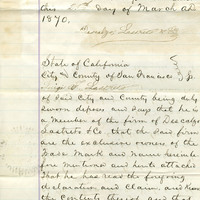 this day of March AD
1870.
State of California
City & County of San Francisco
of said City and County being duly
sworn deposes and says that he is
a member of the firm of
& Co. that the said firm
are the exclusive owners of the
Trade Mark and Name herein be
fore mentioned and hereto attached
That he has read the foregoing
declaration and Claim and knows
the contents thereof and that